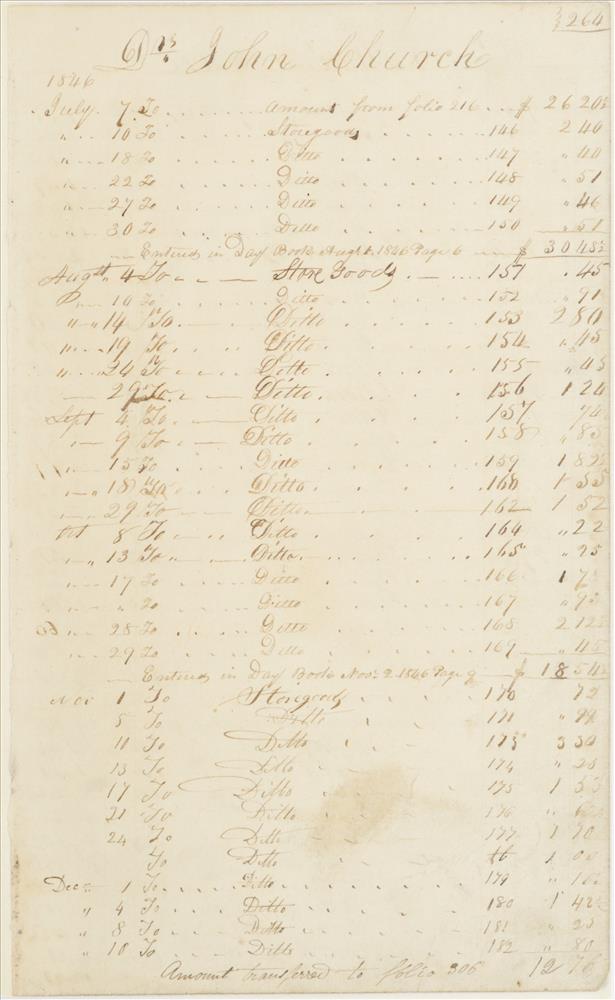 264
Drs John Church
1846
July 7 To Amount from folio 216 $ 26 20½
" 10 To Storegoods 146 2 40
" 18 To Ditto 147 " 40
" 22 To Ditto 148 " 51
" 27 To Ditto 149 " 46
" 30 To Ditto 150 " 51
Entered in Day Book Augt 1. 1846 Page 6 $ 30 48½
Augst " 4 To Store Goods 151 . 45
" 10 To Ditto 152 " 91
" " 14 To Ditto 153 2 80
" 19 To Ditto 154 " 45
" 24 To Ditto 155 " 45
29 To Ditto 156 1 24
Sept 4 To Ditto 157 74
" 9 To Ditto 158 " 85
" 15 To Ditto 159 1 89½
" 18 To Ditto 160 1 55
" 29 To Ditto 162 1 52
Oct 8 To Ditto 164 " 22
" 13 To Ditto 165 " 25
" 17 To Ditto 166 1 7
" " To Ditto 167 " 9
" 28 To Ditto 168 2 12½
" 29 To Ditto 169 " 45
Entered in Day Book Nov. 2. 1846 Page 9 $ 18 54½
Nov 1 To Storegoods 170 72
5 To Ditto 171 "
11 To Ditto 173 3 30
13 To Ditto 174 " 25
17 To Ditto 175 1 55
21 To Ditto 176 "
24 To Ditto 177 1 70
To Ditto 1
Decr 1 To Ditto 179 " 16
" 4 To Ditto 180 1 42½
" 8 To Ditto 181 " 25
" 10 To Ditto 182 " 80
Amount transferred to folio 306 12 76